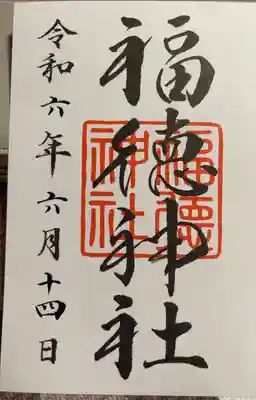 福徳神社
福徳
神社
令和六年六月十四日